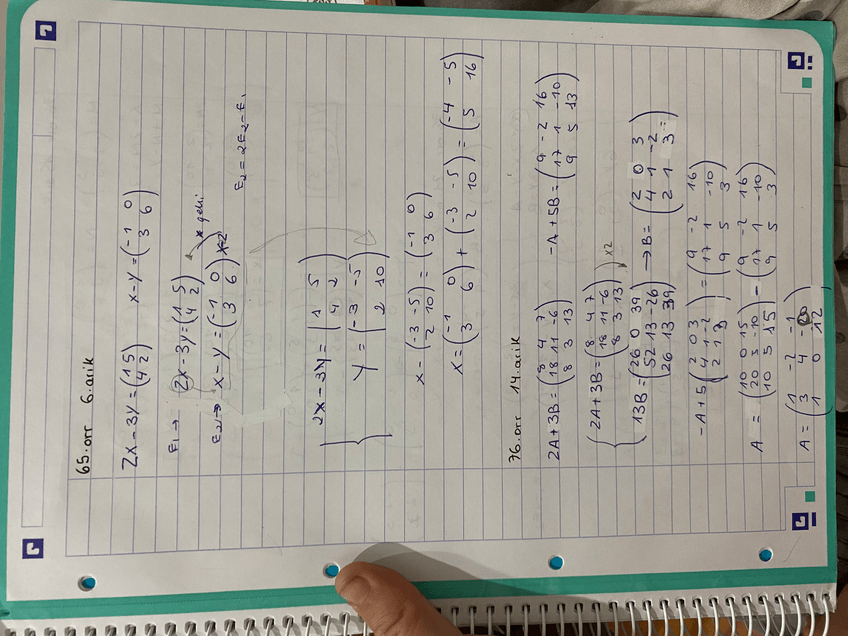 65.orr 6.arik
2X-3Y=(1 5 / 4 2) X-Y=(-1 0 / 3 6)
E1→ 2X-3Y=(1 5 / 4 2)
E2→ X-Y=(-1 0 / 3 6) x2 E2=2E2-E1
2X-3Y=(1 5 / 4 2)
Y=(-3 -5 / 2 10)
X-(-3 -5 / 2 10)=(-1 0 / 3 6)
X=(-1 0 / 3 6)+(-3 -5 / 2 10)=(-4 -5 / 5 16)
76.orr 14.arik
2A+3B=(8 4 7 / 18 11 -6 / 8 3 13) -A+5B=(9 -2 16 / 17 1 -10 / 9 5 13)
2A+3B=(8 4 7 / 18 11 -6 / 8 3 13) x2
13B=(26 0 39 / 52 13 -26 / 26 13 39) →B=(2 0 3 / 4 1 -2 / 2 1 3)
-A+5(2 0 3 / 4 1 -2 / 2 1 3)=(9 -2 16 / 17 1 -10 / 9 5 3)
A=(10 0 15 / 20 5 -10 / 10 5 15)-(9 -2 16 / 17 1 -10 / 9 5 3)
A=(1 -2 -1 / 3 4 -20 / 1 0 12)